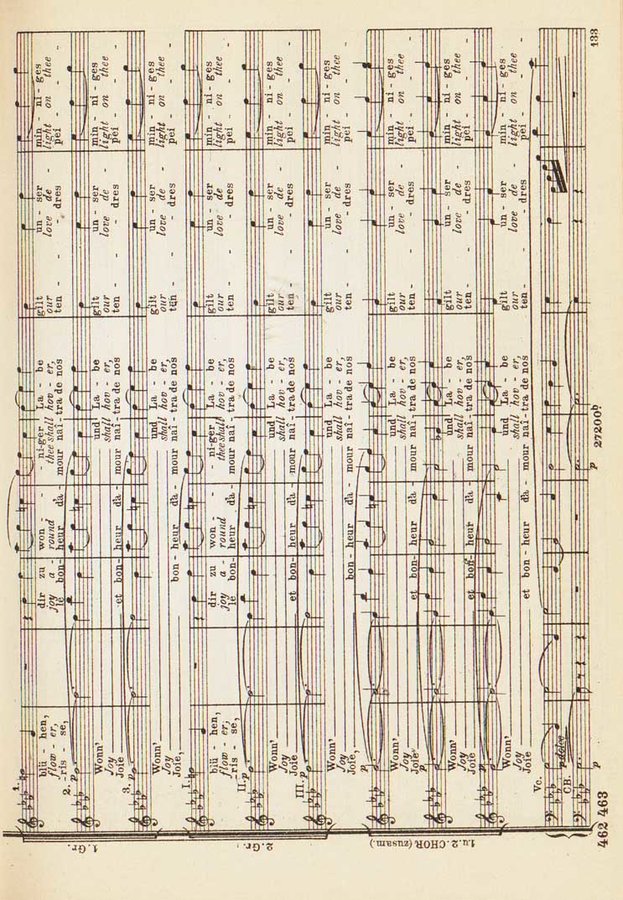 1. Gr.
1.
blü - hen, dir zu won - - ni-ger La - be gilt un - ser min - ni - ges
flow - er, joy a - round thee shall hov - er, our love de - light on thee -
-ris - se, le bon - heur d'a - mour naî - tra de nos ten - - dres pei - -
2. p
Wonn' und La - be gilt un - ser min - ni - ges
Joy shall hov - er, our love de - light on thee -
Joie et bon - heur d'a - mour naî - tra de nos ten - - dres pei - -
3. p
Wonn' und La - be gilt un - ser min - ni - ges
Joy shall hov - er, our love de - light on thee -
Joie, bon - heur d'a - mour naî - tra de nos ten - - dres pei - -
2. Gr.
I.
blü - hen, dir zu won - niger La - be gilt un - ser min - ni - ges
flow - er, joy a - round thee shall hov - er, our love de - light on thee -
-ris - se, le bon - heur d'a - mour naî - tra de nos ten - - dres pei - -
II. p
Wonn' und La - be gilt un - ser min - ni - ges
Joy shall hov - er, our love de - light on thee -
Joie et bon - heur d'a - mour naî - tra de nos ten - - dres pei - -
III. p
Wonn' und La - be gilt un - ser min - ni - ges
Joy shall hov - er, our love de - light on thee -
Joie, bon - heur d'a - mour naî - tra de nos ten - - dres pei - -
1.u.2. CHOR (zusam.)
p
Wonn' und La - be gilt un - ser min - ni - ges
Joy shall hov - er, our love de - light on thee -
Joie et bon - heur d'a - mour naî - tra de nos ten - - dres pei - -
p
Wonn' und La - be gilt un - ser min - ni - ges
Joy shall hov - er, our love de - light on thee -
Joie et bon - heur d'a - mour naî - tra de nos ten - - dres pei - -
p
Wonn' und La - be gilt un - ser min - ni - ges
Joy shall hov - er, our love de - light on thee -
Joie et bon - heur d'a - mour naî - tra de nos ten - - dres pei - -
Vc.
p dolce
CB.
p p
462 463 27200b 133